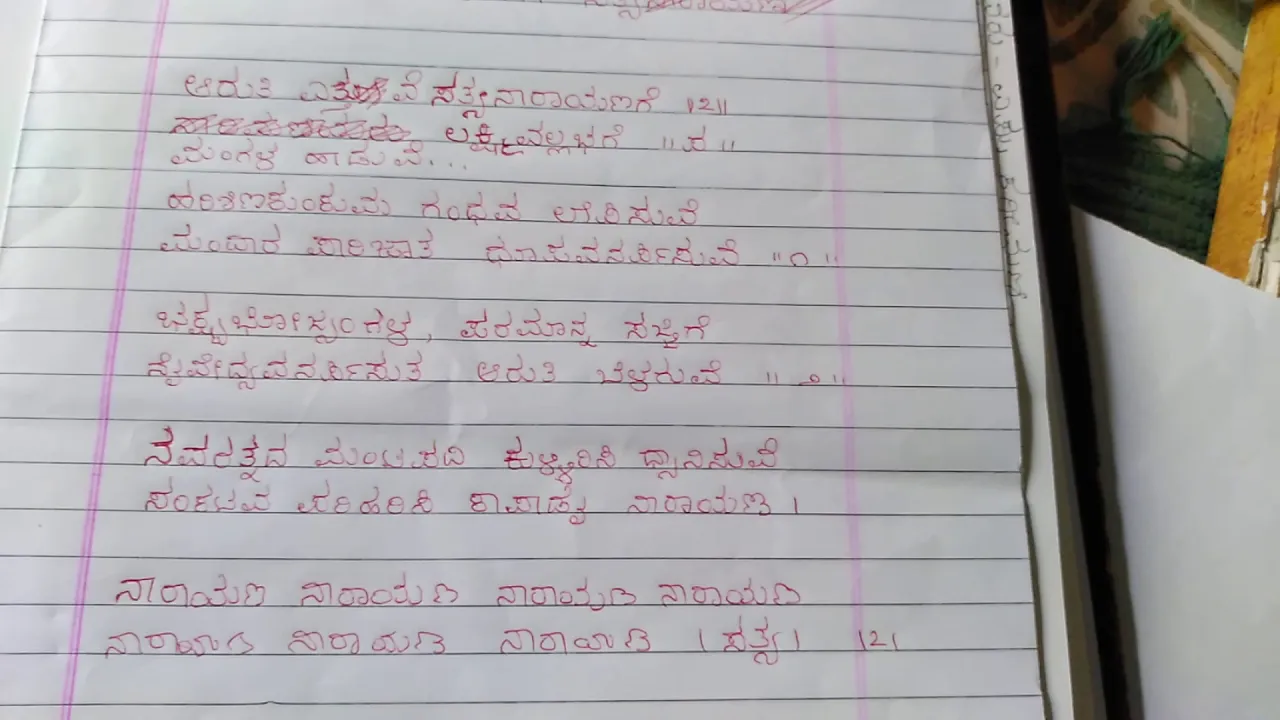 ಆರುತಿ ಎತ್ತುವೆ ಸತ್ಯನಾರಾಯಣಗೆ ।2॥
ಲಕ್ಷ್ಮೀವಲ್ಲಭಗೆ ॥ಪ॥
ಮಂಗಳ ಹಾಡುವೆ...
ಅರಿಶಿಣಕುಂಕುಮ ಗಂಧವ ಅರ್ಪಿಸುವೆ
ಮಂದಾರ ಪಾರಿಜಾತ ಧೂಪವನರ್ಪಿಸುವೆ ॥೧॥
ಭಕ್ಷ್ಯಭೋಜ್ಯಂಗಳ, ಪರಮಾನ್ನ ಸಜ್ಜಿಗೆ
ನೈವೇದ್ಯವನರ್ಪಿಸುತ ಆರುತಿ ಬೆಳಗುವೆ ॥೨॥
ನವರತ್ನದ ಮಂಟಪದಿ ಕುಳ್ಳಿರಿಸಿ ಧ್ಯಾನಿಸುವೆ
ಸಂಕಟವ ಪರಿಹರಿಸಿ ಕಾಪಾಡ್ವ ನಾರಾಯಣ ।
ನಾರಾಯಣ ನಾರಾಯಣ ನಾರಾಯಣ ನಾರಾಯಣ
ನಾರಾಯಣ ನಾರಾಯಣ ನಾರಾಯಣ ।ಸತ್ಯ। ।2।